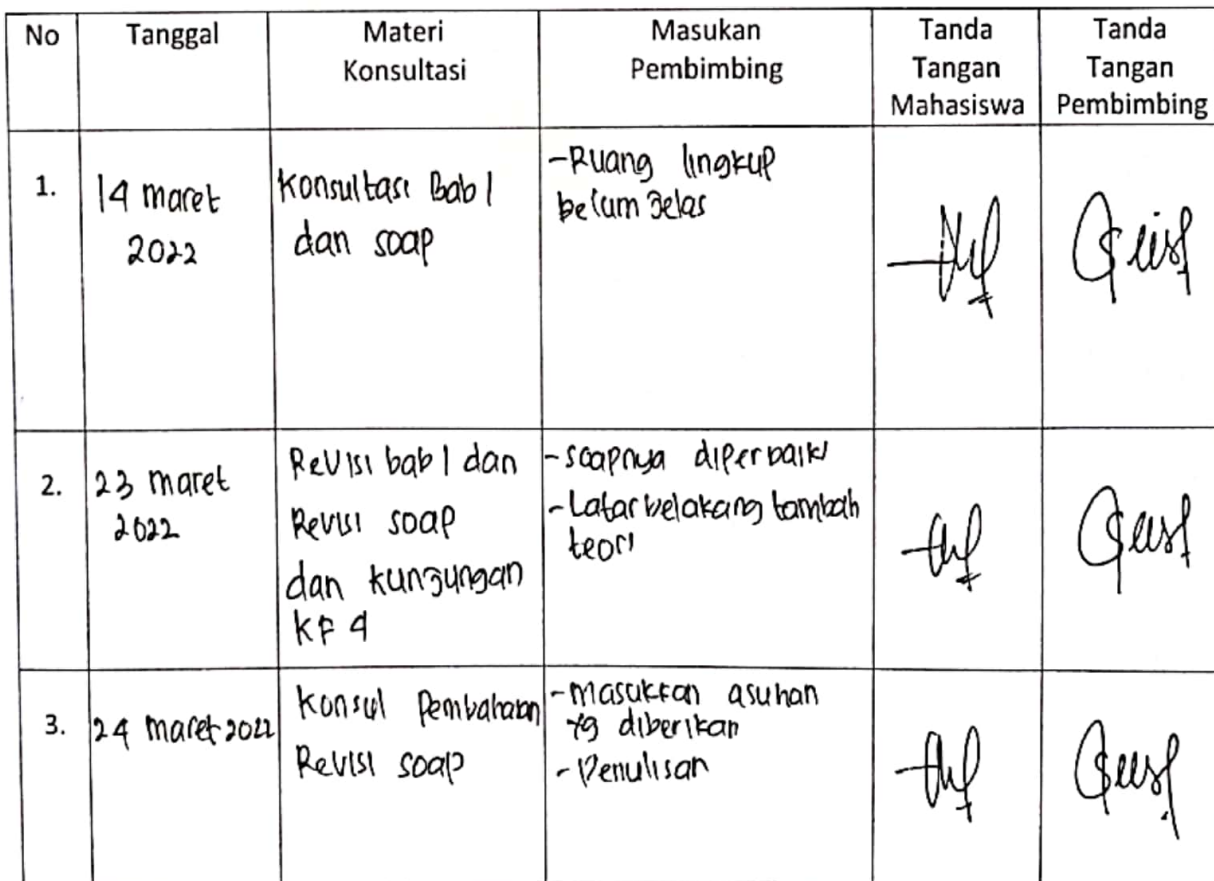 No Tanggal Materi Konsultasi Masukan Pembimbing Tanda Tangan Mahasiswa Tanda Tangan Pembimbing
1.
14 maret
2022
Konsultasi Bab 1
dan soap
-Ruang lingkup
belum jelas
2.
23 maret
2022
Revisi bab 1 dan
Revisi soap
dan kunjungan
KF 4
-soapnya diperbaiki
-Latar belakang tambah
teori
3.
24 maret 2022
Konsul Pembahasan
Revisi soap
-masukkan asuhan
yg diberikan
-Penulisan